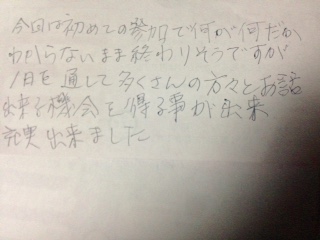 今回は初めての参加で何が何だか
わからないまま終わりそうですが
1日を通して多くさんの方々とお話
出来る機会を得る事が出来
充実出来ました